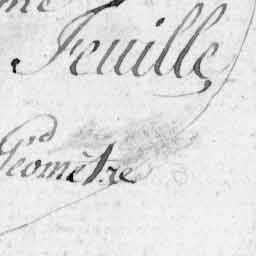 me
Feuille
Géomètre